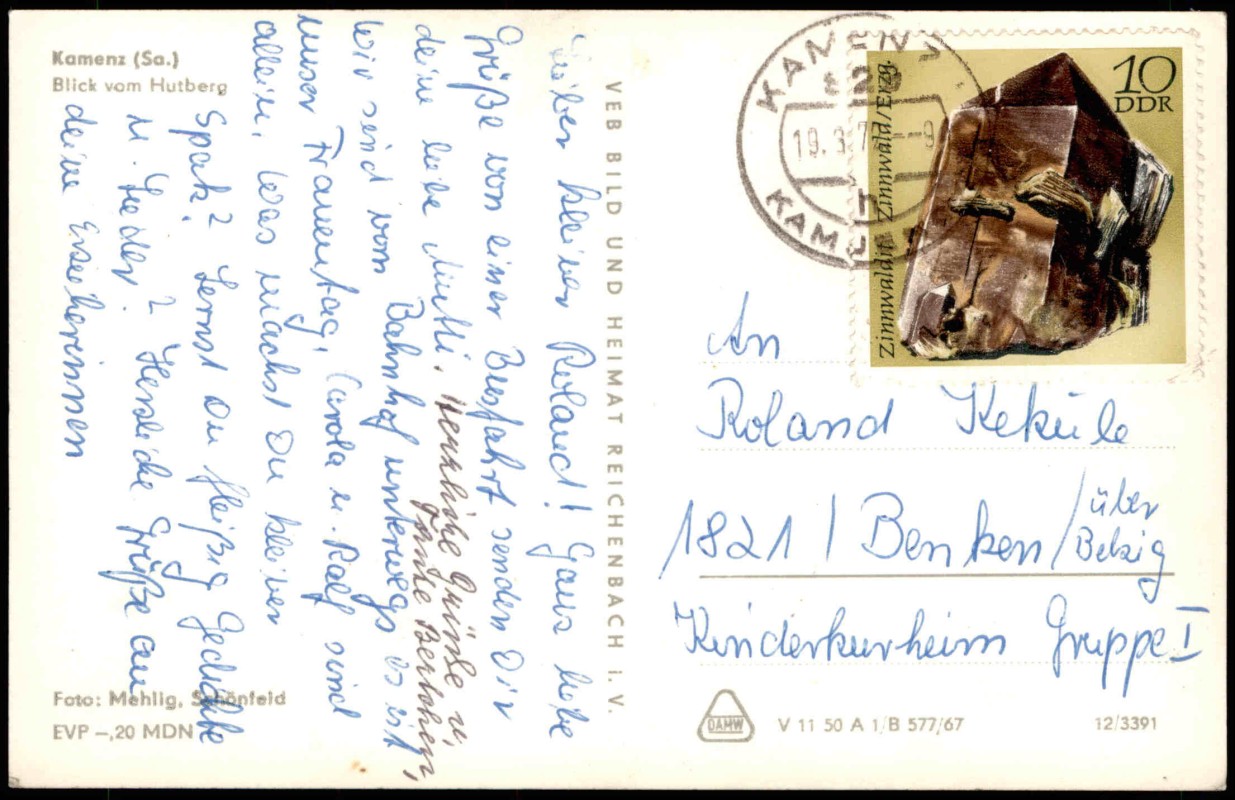 Kamenz (Sa.)
Blick vom Hutberg
Lieber kleiner Roland! Ganz liebe
Grüße von einer Busfahrt senden Dir
deine liebe Mutti.
Wir sind vom Bahnhof unterwegs es ist
unser Frauentag, Carola u. Ralf sind
allein, was machst Du kleiner
Spatz? Lernst Du fleißig Gedichte
u. Lieder? Herzliche Grüße an
deine Erzieherinnen
herzliche Grüße v.
Tante
VEB BILD UND HEIMAT REICHENBACH i. V.
Foto: Mehlig, Schönfeld
EVP –,20 MDN
KAMENZ
19.3.7 -9
KAM
10
DDR
Zinnwaldit Zinnwald/Erzg.
An
Roland Keküle
1821 / Benken / über Belzig
Kinderkurheim Gruppe I
DAMW
V 11 50 A 1/B 577/67
12/3391